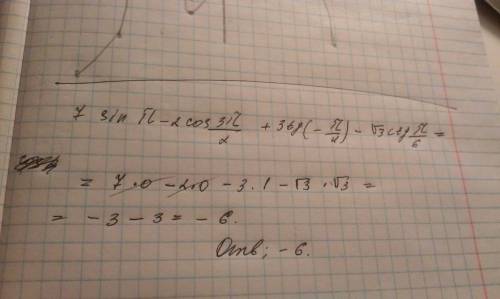 7 sin π - 2 cos 3π/2 + 3 tg(-π/4) - √3 ctg π/6 =
= 7·0 - 2·0 - 3·1 - √3·√3 =
= -3 - 3 = -6.
Отв; -6.